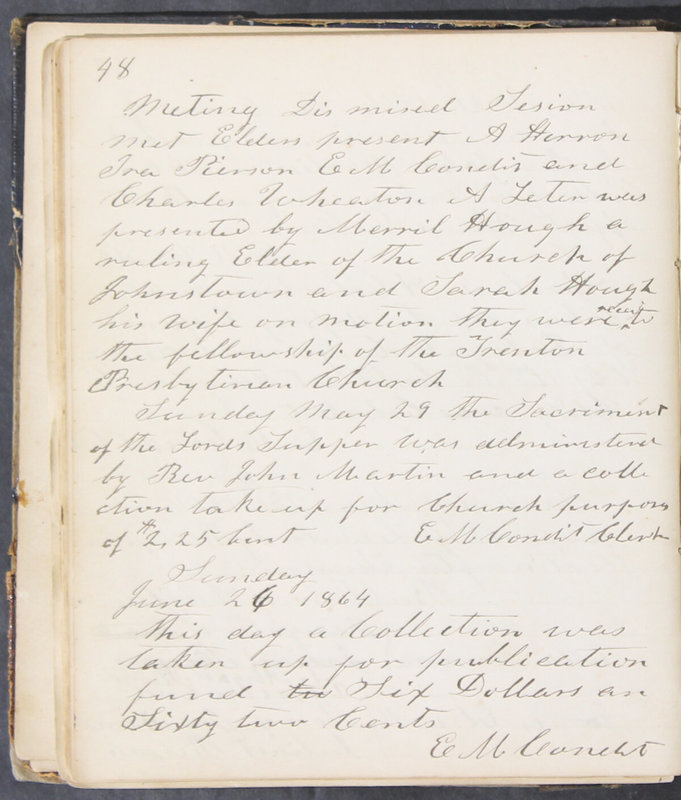 48
Meting Dis mised Sesion
met Elders present A Herron
Ira Pierson E M Condit and
Charles Wheaton A Leter was
presented by Merril Hough a
ruling Elder of the Church of
Johnstown and Sarah Hough
his wife on motion they were receit to
the fellowship of the Trenton
Presbyterian Church
Sunday May 29 the Sacriment
of the Lords Supper was adminsterd
by Rev John Martin and a colle
ction take up for Church purposes
of $2,25 cent E M Condit Clerk
Sunday
June 26 1864
This day a Collection was
taken up for publication
fund Six Dollars an
Sixty two Cents
E M Condit